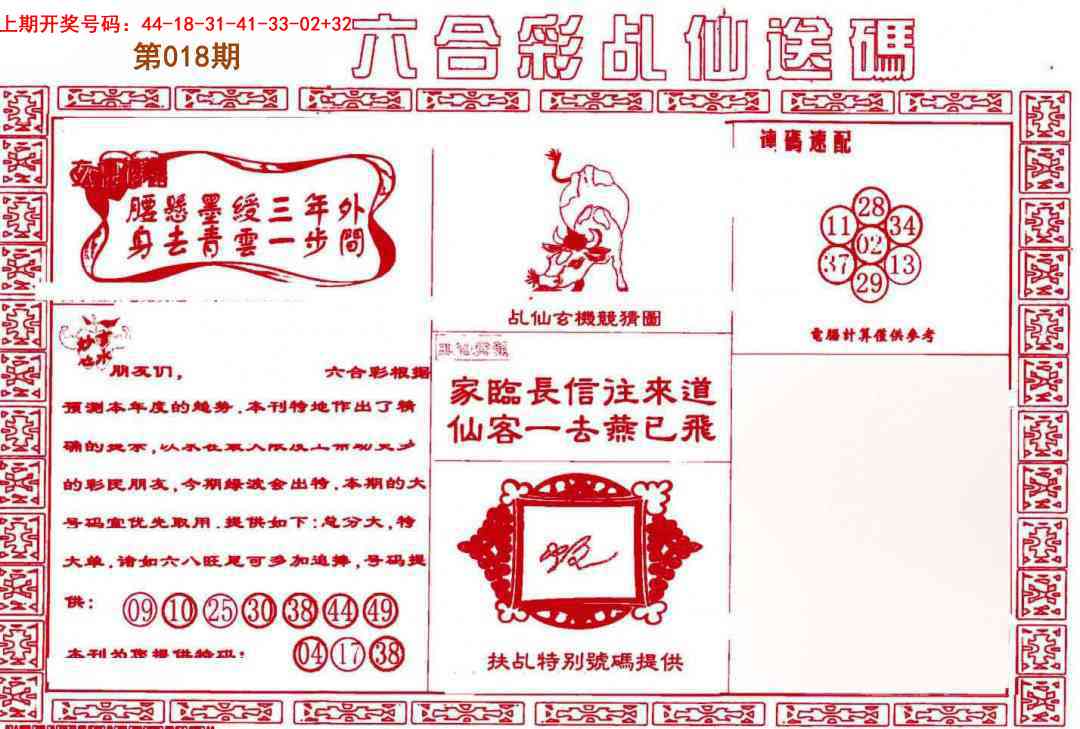 上期开奖号码：44-18-31-41-33-02+32
第018期
六合彩乩仙送碼
腰懸墨綬三年外
身去青雲一步間
朋友们， 六合彩根据
预测本年度的趋势，本刊特地作出了精
确的提示，以求在最大限度上帮助更多
的彩民朋友，今期绿波会出特，本期的大
号码宜优先取用，提供如下：总分大，特
大单，诸如六八旺尾可多加追捧，号码提
供：
09 10 25 30 38 44 49
本刊为您提供特码：
04 17 38
乩仙玄機競猜圖
家臨長信往來道
仙客一去燕已飛
扶乩特别號碼提供
連碼速配
28
11 34
02
37 13
29
電腦計算僅供參考